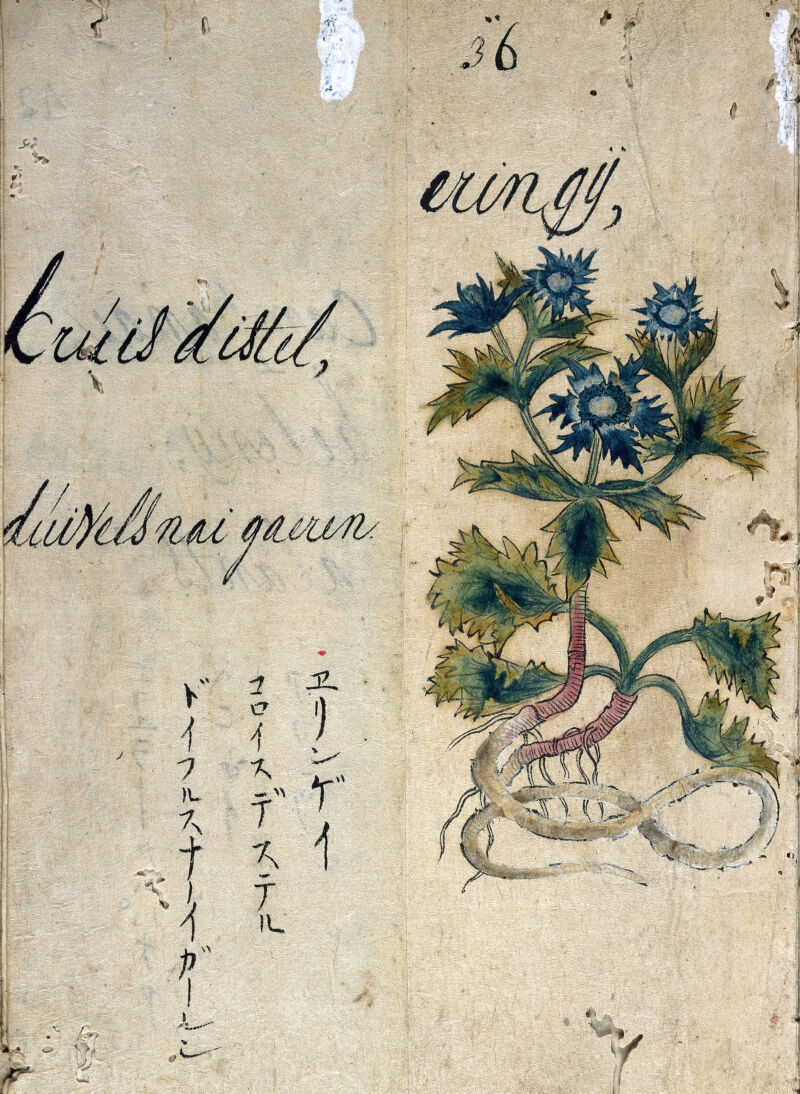 36
eringÿ,
kruis distel,
duivels nai gaeren.
ヱリンゲイ
コロイスデステル
ドイフルスナーイガーレン